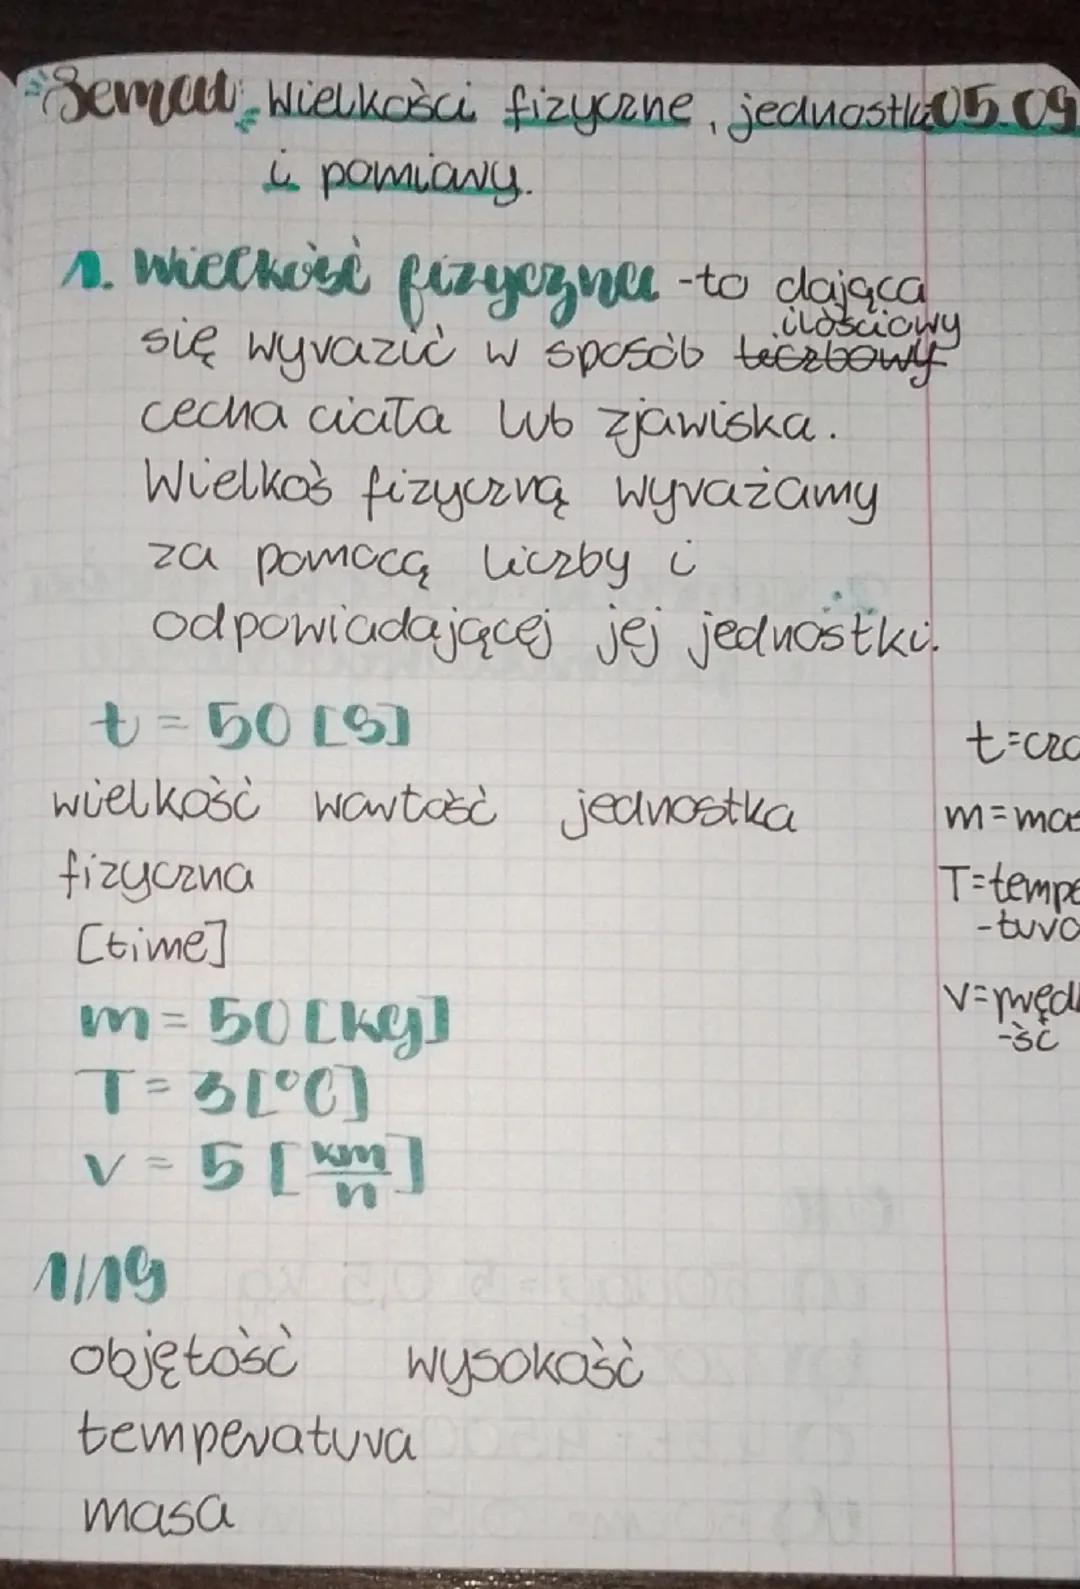 Temat: Wielkości fizyczne, jednostki 05.09
i pomiary.
1. Wielkość fizyczna - to dająca
ilościowy
się wyrazić w sposób liczbowy
cecha ciała lub zjawiska.
Wielkoś fizyczną wyrażamy
za pomocą liczby i
odpowiadającej jej jednostki.
t = 50 [s]
t=cza
wielkość wartość jednostka
m=mas
fizyczna
T=tempe
-tura
[time]
v=pręd
-ść
m = 50 [kg]
T = 3 [°C]
v = 5 [km/h]
1/19
objętość wysokość
temperatura
masa